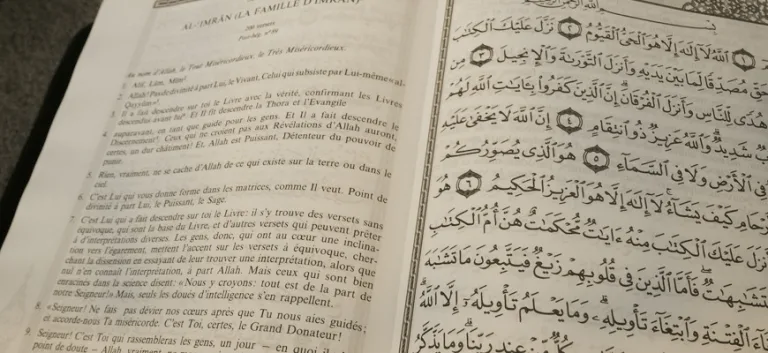 AL-'IMRÂN (LA FAMILLE D'IMRAN)
200 versets
Post-hég. n° 89
Au nom d'Allah, le Tout Miséricordieux, le Très Miséricordieux.
1. Alif, Lâm, Mîm.
2. Allah! Pas de divinité à part Lui, le Vivant, Celui qui subsiste par Lui-même «al-
Qayyûm».
3. Il a fait descendre sur toi le Livre avec la vérité, confirmant les Livres
descendus avant lui. Et Il fit descendre la Thora et l'Evangile
4. auparavant, en tant que guide pour les gens. Et Il a fait descendre le
Discernement. Ceux qui ne croient pas aux Révélations d'Allah auront,
certes, un dur châtiment! Et, Allah est Puissant, Détenteur du pouvoir de
punir.
5. Rien, vraiment, ne se cache d'Allah de ce qui existe sur la terre ou dans le
ciel.
6. C'est Lui qui vous donne forme dans les matrices, comme Il veut. Point de
divinité à part Lui, le Puissant, le Sage.
7. C'est Lui qui a fait descendre sur toi le Livre: il s'y trouve des versets sans
équivoque, qui sont la base du Livre, et d'autres versets qui peuvent prêter
à d'interprétations diverses. Les gens, donc, qui ont au cœur une inclina-
tion vers l'égarement, mettent l'accent sur les versets à équivoque, cher-
chant la dissension en essayant de leur trouver une interprétation, alors que
nul n'en connaît l'interprétation, à part Allah. Mais ceux qui sont bien
enracinés dans la science disent: «Nous y croyons: tout est de la part de
notre Seigneur!» Mais, seuls les doués d'intelligence s'en rappellent.
8. «Seigneur! Ne fais pas dévier nos cœurs après que Tu nous aies guidés;
et accorde-nous Ta miséricorde. C'est Toi, certes, le Grand Donateur!
9. Seigneur! C'est Toi qui rassembleras les gens, un jour – en quoi il
point de doute – Allah, vraiment,
١ ٱللَّهُ لَآ إِلَٰهَ إِلَّا هُوَ ٱلْحَىُّ ٱلْقَيُّومُ ٢ نَزَّلَ عَلَيْكَ ٱلْكِتَٰبَ
مُصَدِّقًا لِّمَا بَيْنَ يَدَيْهِ وَأَنزَلَ ٱلتَّوْرَىٰةَ وَٱلْإِنجِيلَ ٣ مِن
هُدًى لِّلنَّاسِ وَأَنزَلَ ٱلْفُرْقَانَ إِنَّ ٱلَّذِينَ كَفَرُوا۟ بِـَٔايَٰتِ ٱللَّهِ لَهُمْ
شَدِيدٌ وَٱللَّهُ عَزِيزٌ ذُو ٱنتِقَامٍ ٤ إِنَّ ٱللَّهَ لَا يَخْفَىٰ عَلَيْهِ
فِى ٱلْأَرْضِ وَلَا فِى ٱلسَّمَآءِ ٥ هُوَ ٱلَّذِى يُصَوِّرُكُمْ
كَيْفَ يَشَآءُ لَآ إِلَٰهَ إِلَّا هُوَ ٱلْعَزِيزُ ٱلْحَكِيمُ ٦ هُوَ
أَنزَلَ عَلَيْكَ ٱلْكِتَٰبَ مِنْهُ ءَايَٰتٌ مُّحْكَمَٰتٌ هُنَّ أُمُّ ٱلْكِتَٰبِ
مُتَشَٰبِهَٰتٌ فَأَمَّا ٱلَّذِينَ فِى قُلُوبِهِمْ زَيْغٌ فَيَتَّبِعُونَ مَا تَشَٰبَهَ
ٱلْفِتْنَةِ وَٱبْتِغَآءَ تَأْوِيلِهِۦ وَمَا يَعْلَمُ تَأْوِيلَهُۥٓ إِلَّا ٱللَّهُ
كُلٌّ مِّنْ عِندِ رَبِّنَا وَمَا يَذَّكَّرُ